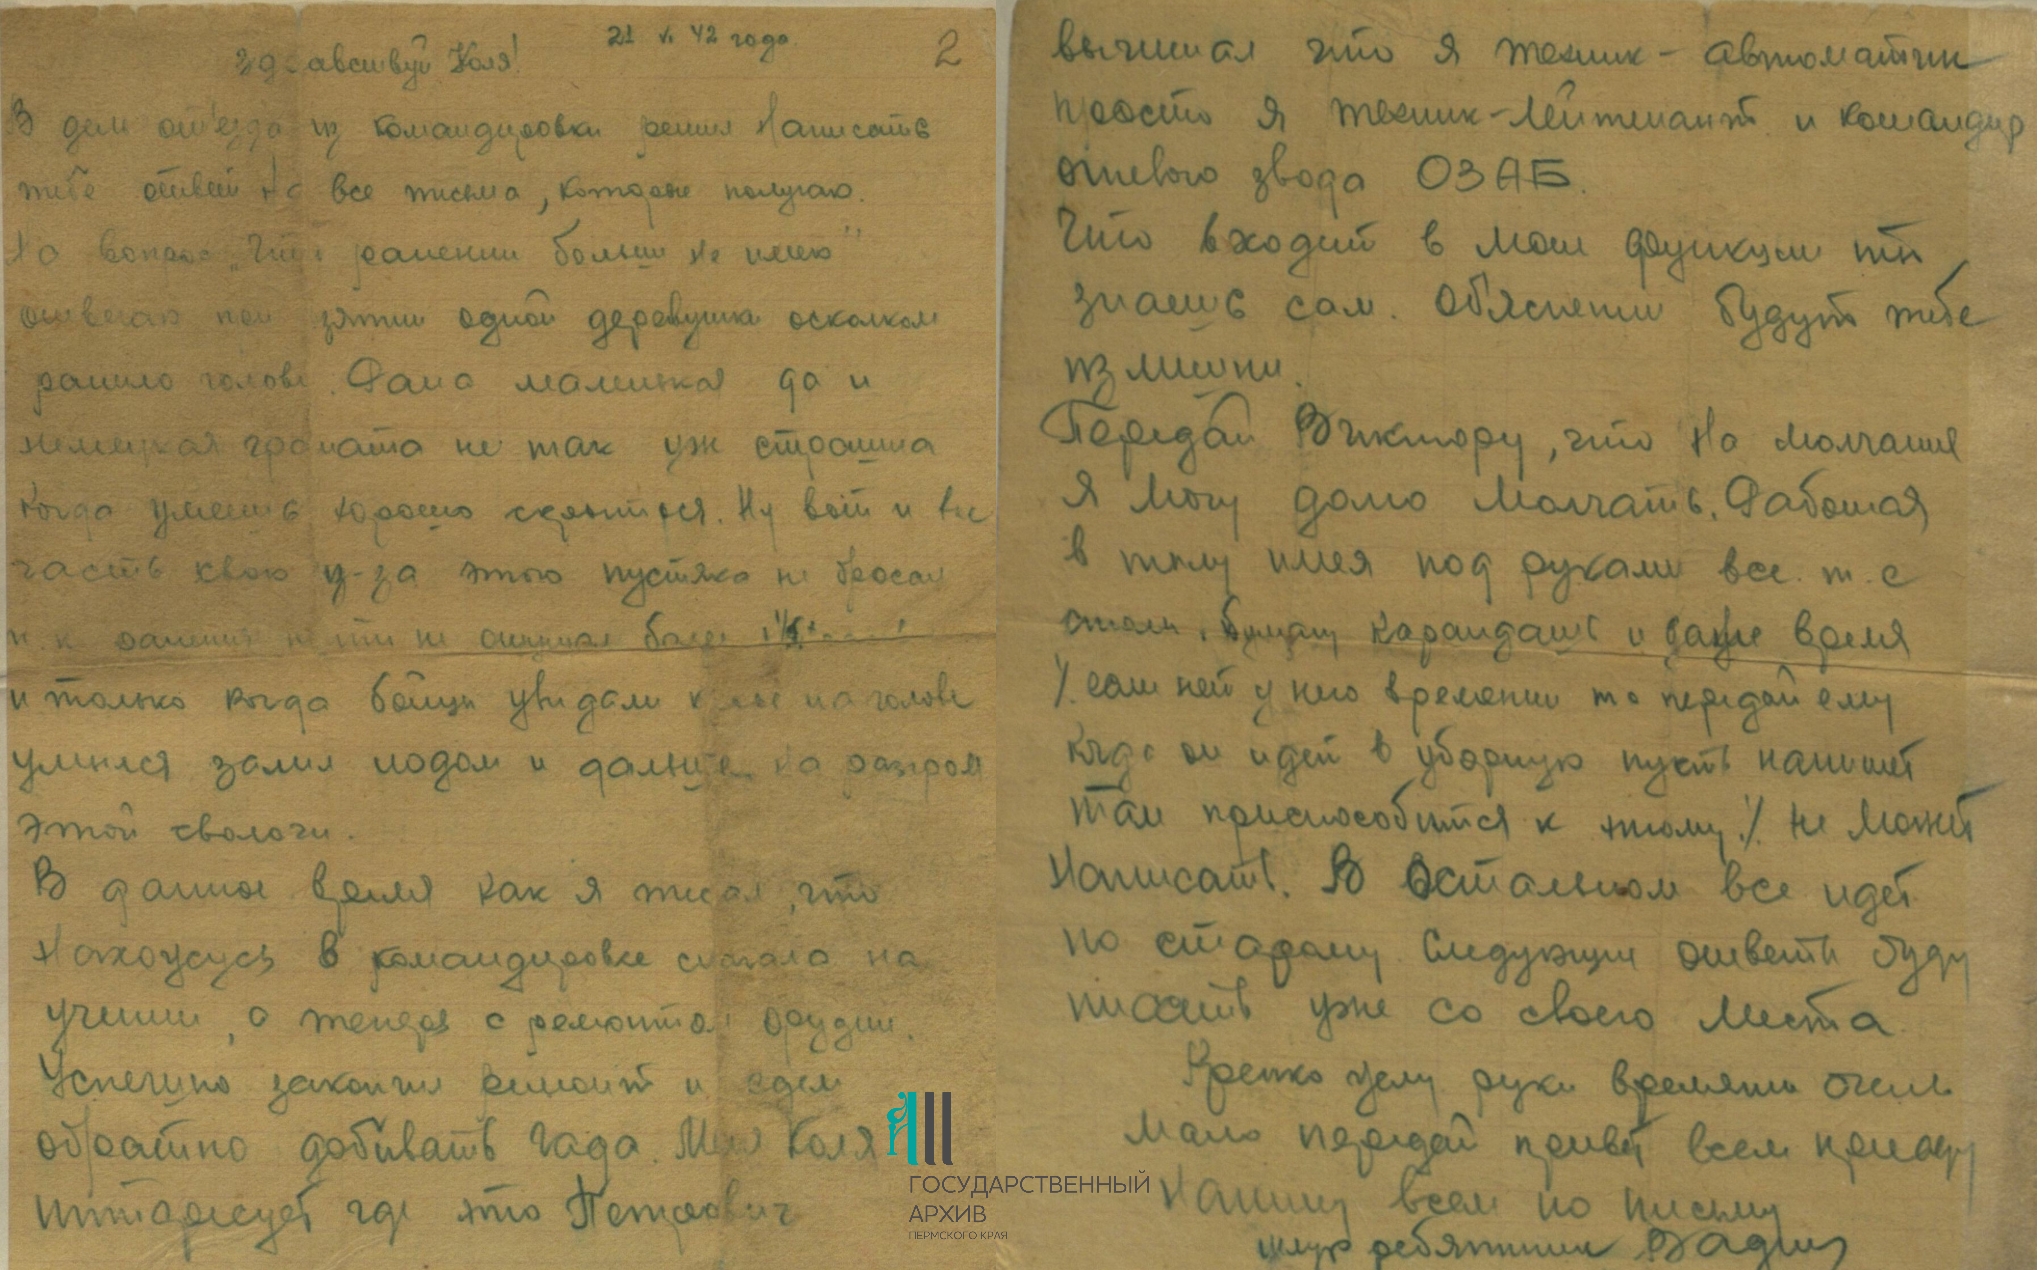 21 VI 42 года
2
здравствуй Коля!
В день от'езда из командировки решил написать
тебе ответ на все письма, которые получаю.
На вопрос „что ранении больше не имею"
отвечаю при взятии одной деревушки осколком
ранило голове. Рана маленькая да и
немецкая граната не так уж страшна
когда умеешь хорошо скрыться. Ну вот и все
часть свою из-за этого пустяка не бросал
т.к ранения почти не ощущал более
и только когда бойцы увидали кровь на голове
умылся залил иодом и дальше на разгром
этой сволочи.
В данное время как я писал, что
нахожусь в командировке сначала на
учении, а теперь с ремонтом орудии.
Успешно закончил ремонт и едем
обратно добивать гада. Меня Коля
интересует где это Петрович
вычитал что я техник-автоматчик
просто я техник-лейтенант и командир
огневого звода ОЗАБ.
Что входит в мои функции ты
знаешь сам. Об'яснении будут тебе
излишни.
Передай Виктору, что на молчания
я могу долго молчать. Работая
в тылу имея под руками все т.е
столы, бумагу карандаш и даже время
/. если нет у него времени то передай ему
когда он идет в уборную пусть напишет
там приспособится к этому ./ не может
написать. В остальном все идет
по старому. Следующие ответы буду
писать уже со своего места.
Крепко жму руки времяни очень
мало передай привет всем приеду
напишу всем по письму
жму ребятишки Вадим
ГОСУДАРСТВЕННЫЙ
АРХИВ
ПЕРМСКОГО КРАЯ